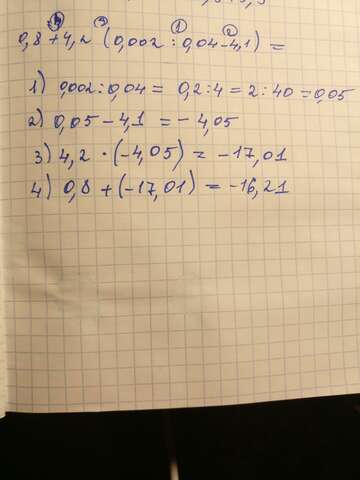 ④ ③ ① ②
0,8+4,2 (0,002:0,04-4,1) =
1) 0,002:0,04 = 0,2:4=2:40=0,05
2) 0,05-4,1=-4,05
3) 4,2·(-4,05) = -17,01
4) 0,8+(-17,01) = -16,21